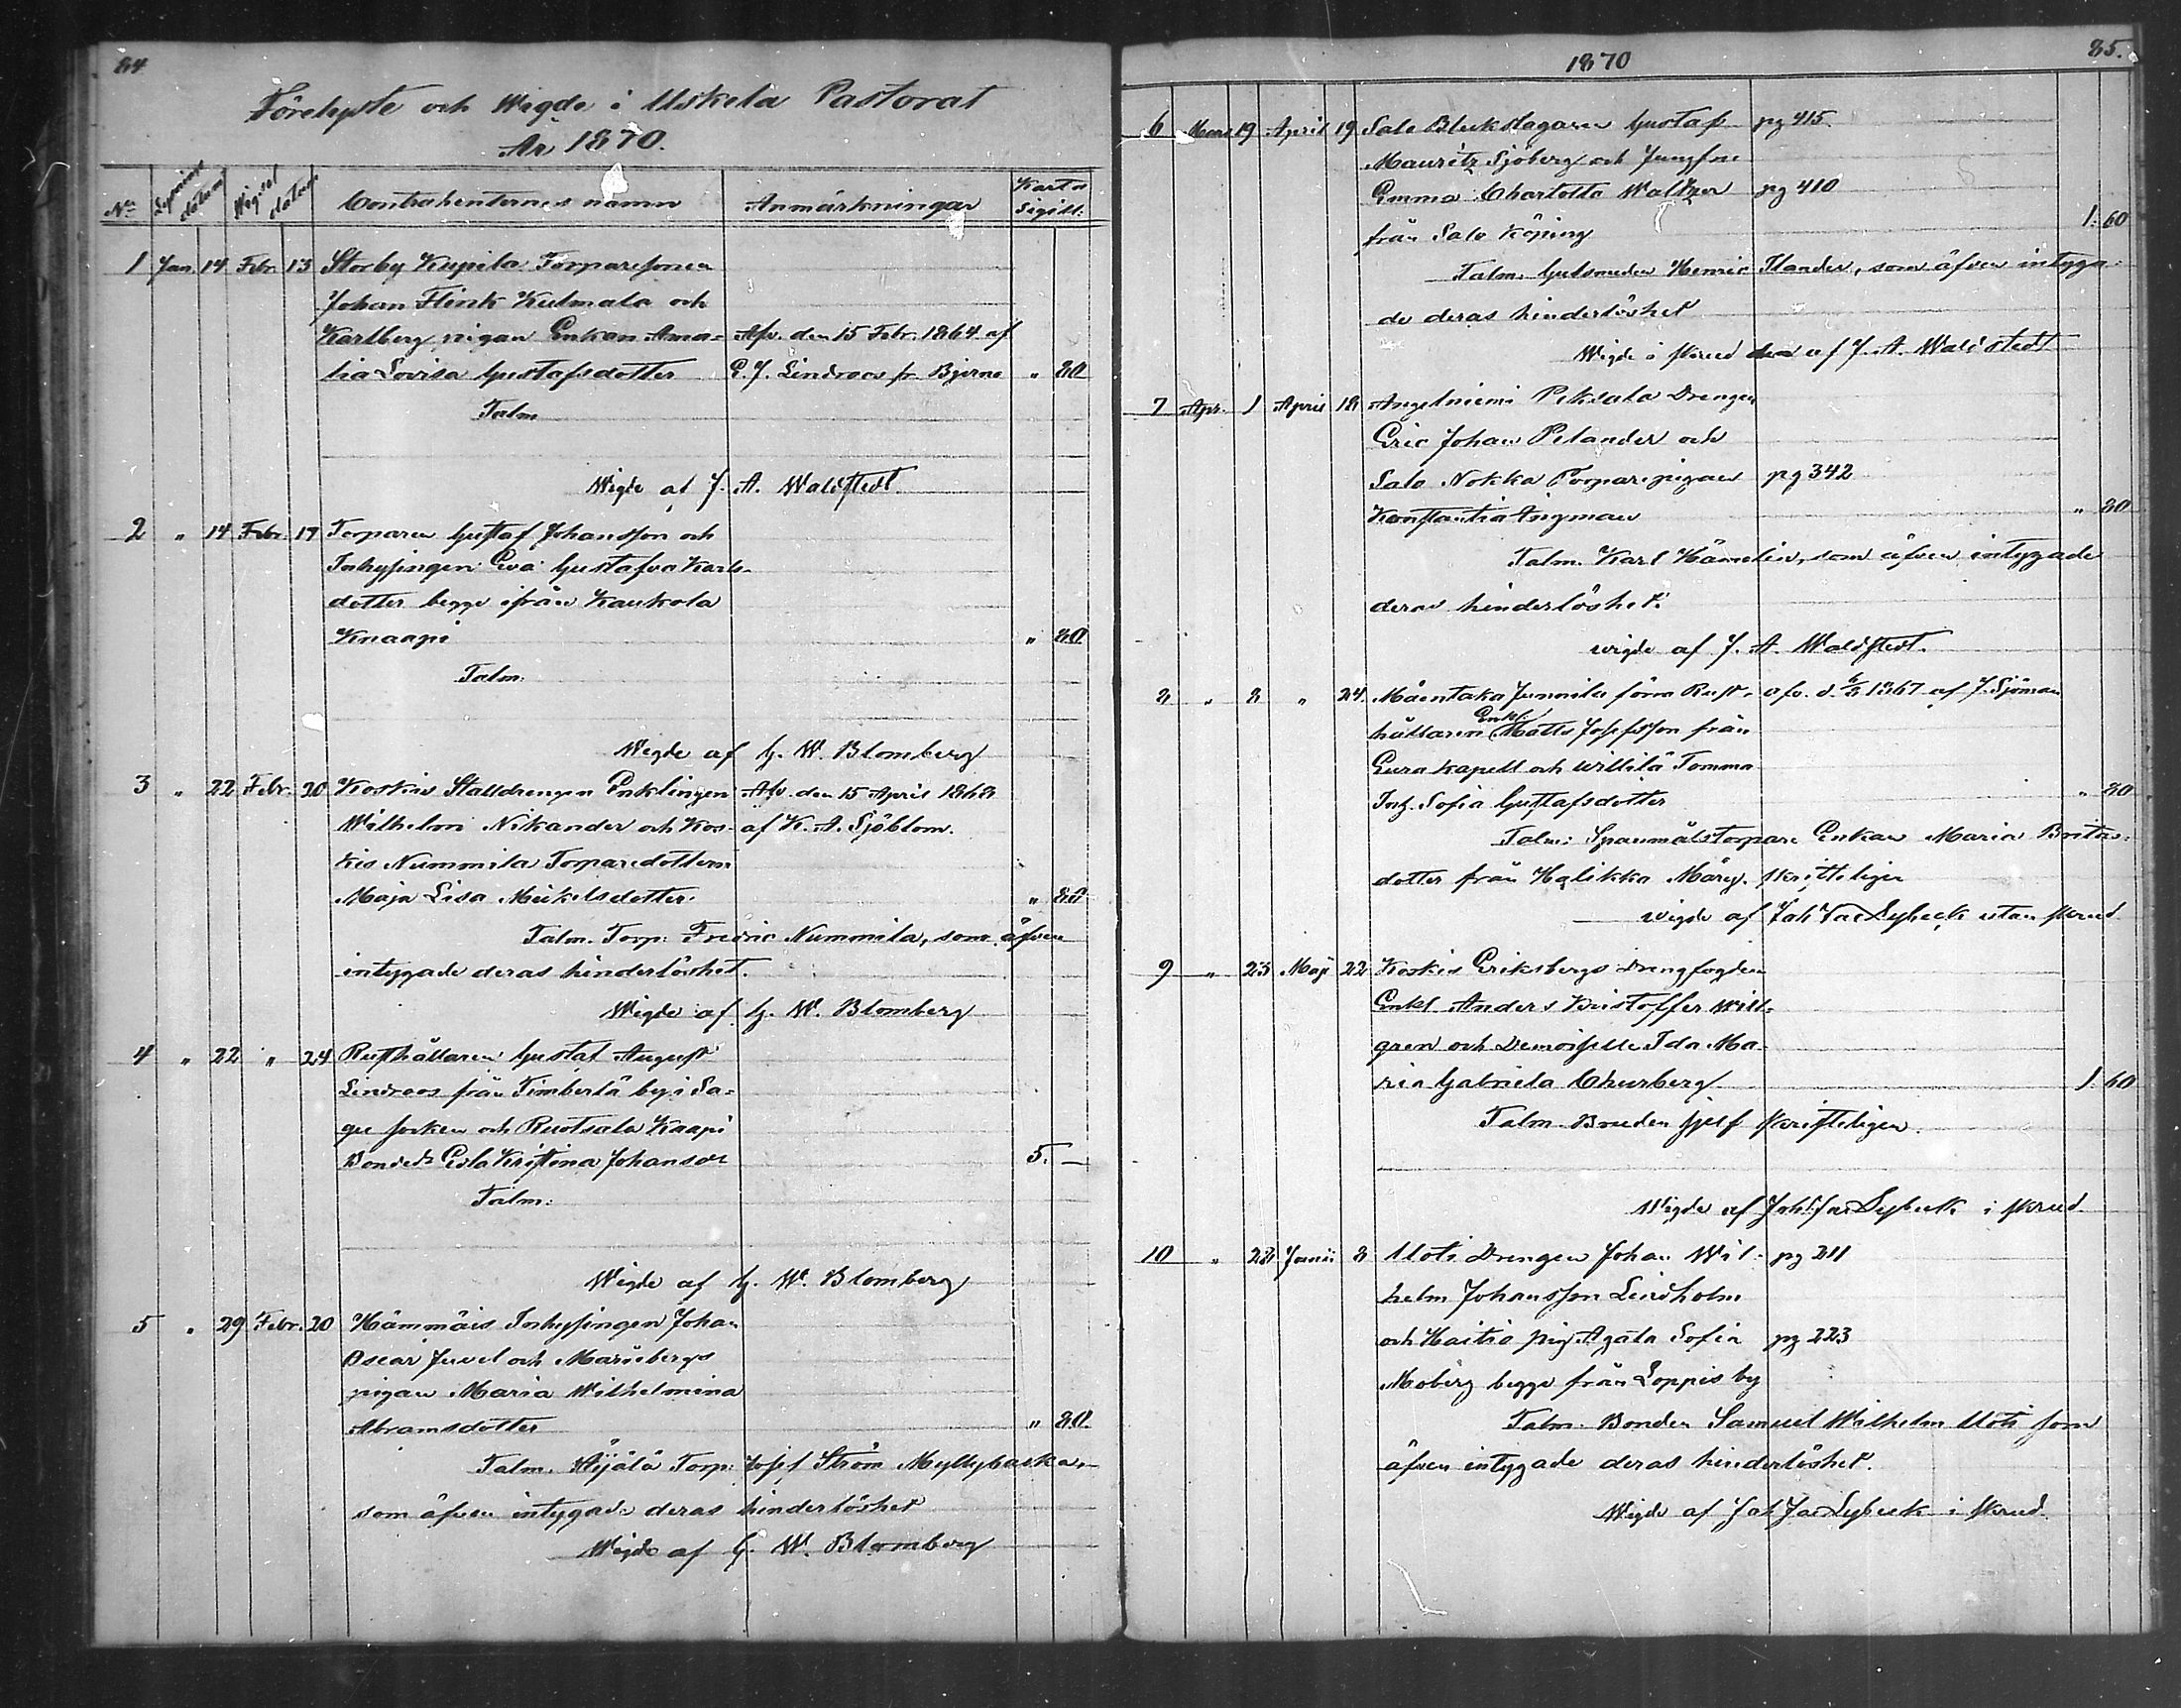 84
Förelyste och Wigde i Uskela Pastorat
År 1870.
No Lysnings datum Wigsel datum Contrahenternes namn Anmärkningar Karta Sigill:
1 Jan. 14 Febr. 13 Storby Kupila Torparesonen
Johan Flink Kulmala och
Karlberg pigan Enkan Ama= Afv. den 15 Febr. 1864 af
lia Lovisa Gustafsdotter C. J. Lindroos fr. Bjerno " 80
Talm
Wigde af J. A. Waldstedt.
2 " 14 Febr. 17 Torparen Gustaf Johansson och
Inhysingen Eva Gustafva Karls-
dotter begge ifrån Kaukola
Knaapi " 80
Talm:
Wigde af G. W. Blomberg
3 " 22 Febr. 20 Koskis Stalldrengen Enklingen Afv. den 15 April 1868
Wilhelm Nikander och Kos- af K. A. Sjöblom.
kis Nummila Torparedottern
Maja Lisa Mickelsdotter. " 80
Talm. Torp: Fredric Nummila, som äfven
intygade deras hinderlöshet.
Wigde af G. W. Blomberg
4 " 22 " 24 Rusthållaren Gustaf August
Lindroos från Timberlä by i Sa=
gu socken och Ruotsala Knapi
Bonded. Eva Kristina Johansdr 5. —
Talm:
Wigde af G. W. Blomberg
5 " 29 Febr. 20 Hämmäis Inhysingen Johan
Oscar Juvel och Mariebergs
pigan Maria Wilhelmina
Abramsdotter " 80
Talm. Äijälä Torp: Josef Ström Myllyhaska,
som äfven intygade deras hinderlöshet
Wigde af G. W. Blomberg
1870 85.
6 Mars 19 April 19 Salo Bleckslagaren Gustaf pg 415.
Mauritz Sjöberg och Jungfru
Emma Charlotta Waltzer pg 410
från Salo Köping 1. 60
Talm. Guldsmeden Henric Ilander, som äfven intyga-
de deras hinderlöshet
Wigde i skrud af J. A. Waldstedt
7 Apr. 1 April 18 Angelniemi Peksala Drengen
Eric Johan Pelander och
Salo Nokka Torparepigan pg 342
Konstantia Ingman " 80
Talm. Karl Hämelin, som äfven intygade
deras hinderlöshet.
wigde af J. A. Waldstedt.
8 " 8 " 24. Mäentaka Junnila förra Rust- afv. d. 6/8 1867 af J. Sjöman
hållaren Enkl: Matts Josefsson från
Eura kapell och Willilä Tomma
Inh. Sofia Gustafsdotter " 80
Talm: Spannmålstorpare Enkan Maria Brita-
dotter från Halikko Märy. skriftligen
wigde af Joh Jac Lybeck utan skrud
9 " 23 Maji 22 Koskis Eriksbergs Drengfogden
Enkl. Anders Kristoffer Will-
gren och Demoiselle Ida Ma-
ria Gabriela Churberg 1. 60
Talm. Bruden sjelf skriftligen.
Wigde af Joh Jac Lybeck i skrud
10 " 28 Junii 8 Uoti Drengen Johan Wil- pg 211
helm Johansson Lindholm
och Haitio pig. Agata Sofia pg 223
Moberg begge från Loppis by
Talm. Bonden Samuel Wilhelm Uoti som
äfven intygade deras hinderlöshet.
Wigde af Joh Jac Lybeck i skrud.